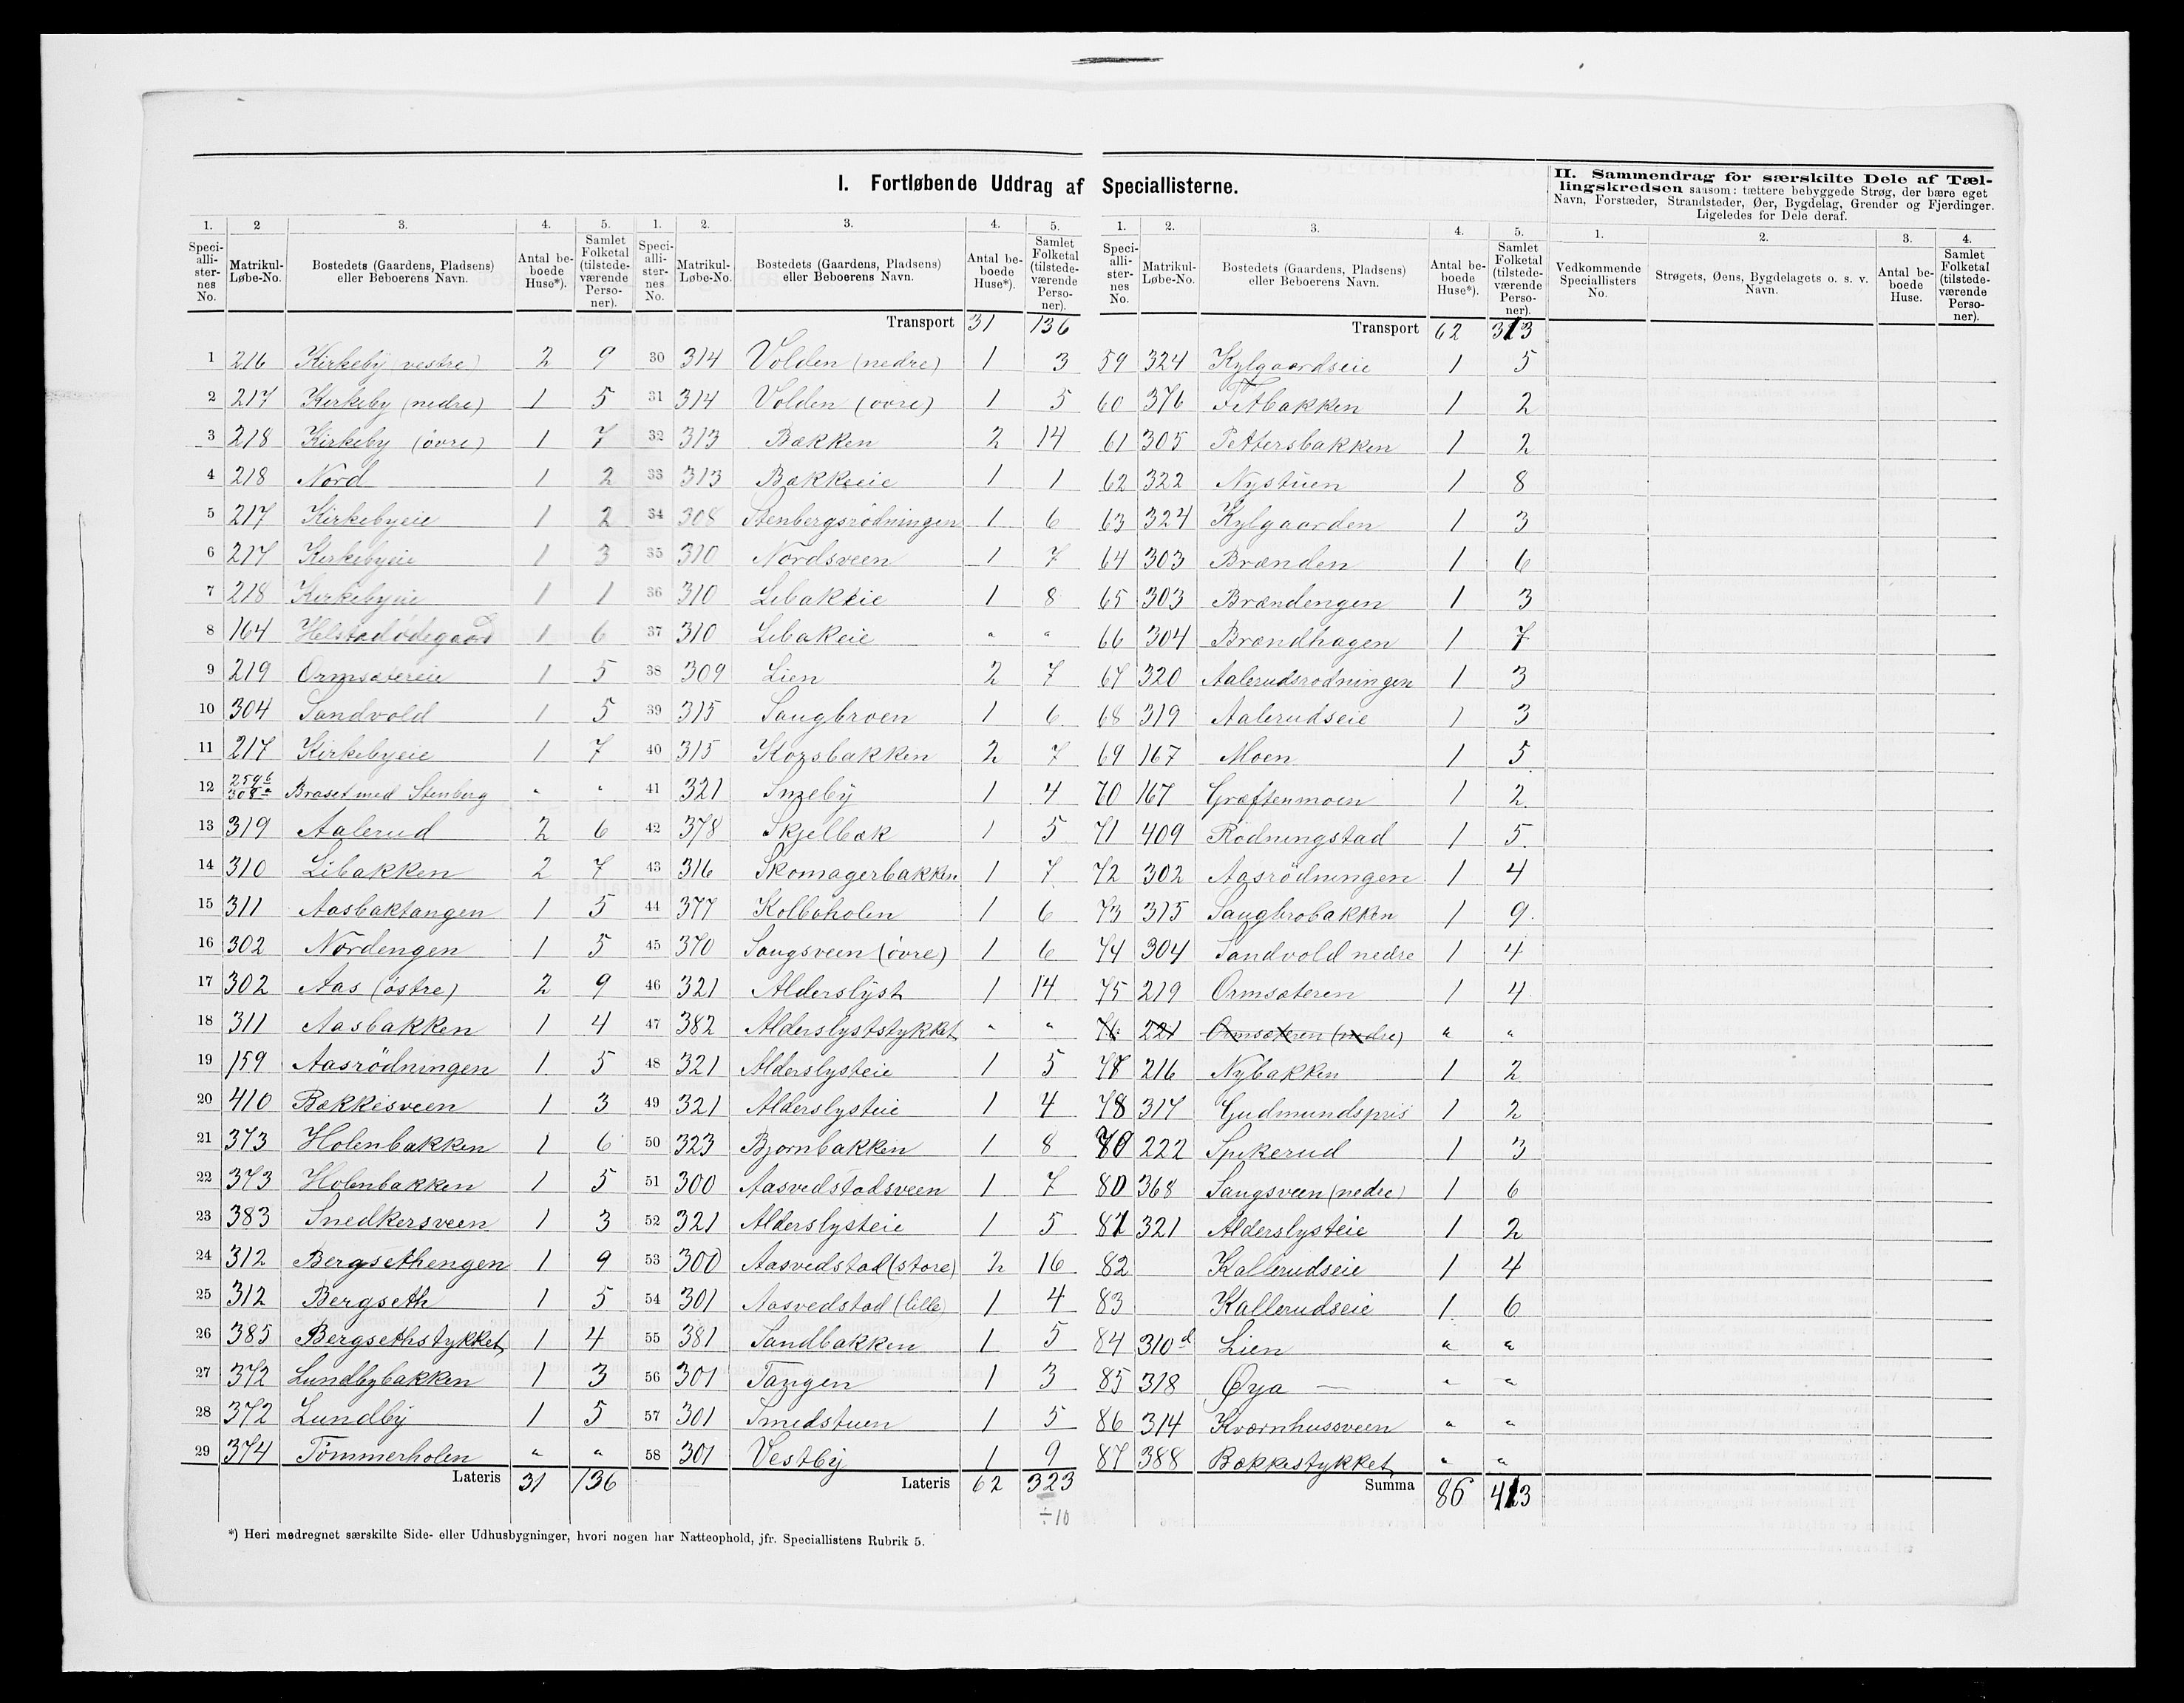 I. Fortløbende Uddrag af Speciallisterne.
1. 2 3. 4. 5.
Speciallisternes No. Matrikul-Løbe-No. Bostedets (Gaardens, Pladsens) eller Beboerens Navn. Antal beboede Huse*). Samlet Folketal (tilstedeværende Personer).
1 216 Kirkeby (vestre) 2 9
2 217 Kirkeby (nedre) 1 5
3 218 Kirkeby (övre) 1 7
4 218 Nord 1 2
5 217 Kirkebyeie 1 2
6 217 Kirkebyeie 1 3
7 218 Kirkebyeie 1 1
8 164 Helstadødegaard 1 6
9 219 Ormsætereie 1 5
10 304 Sandvold 1 5
11 217 Kirkebyeie 1 7
12 259b 308a Braset med Stenberg " "
13 319 Aalerud 2 6
14 310 Libakken 2 7
15 311 Aasbaktangen 1 5
16 302 Nordengen 1 5
17 302 Aas (östre) 2 9
18 311 Aasbakken 1 4
19 159 Aasrödningen 1 5
20 410 Bækkesveen 1 3
21 373 Holenbakken 1 6
22 373 Holenbakken 1 5
23 383 Snedkersveen 1 3
24 312 Bergsethengen 1 9
25 312 Bergseth 1 5
26 385 Bergsethstykket 1 4
27 372 Lundbybakken 1 3
28 372 Lundby 1 5
29 374 Tömmerholen " "
Lateris 31 136
1. 2. 3. 4. 5.
Speciallisternes No. Matrikul-Løbe-No. Bostedets (Gaardens, Pladsens) eller Beboerens Navn. Antal beboede Huse*). Samlet Folketal (tilstedeværende Personer).
Transport 31 136
30 314 Volden (nedre) 1 3
31 314 Volden (övre) 1 5
32 313 Bækken 2 14
33 313 Bækkeeie 1 1
34 308 Stenbergsrödningen 1 6
35 310 Nordsveen 1 7
36 310 Libakeie 1 8
37 310 Libakeie " "
38 309 Lien 2 7
39 315 Saugbroen 1 6
40 315 Korsbakken 2 7
41 321 Smeby 1 4
42 378 Skjelbæk 1 5
43 316 Skomagerbakken 1 7
44 377 Kolboholen 1 6
45 370 Saugsveen (övre) 1 6
46 321 Alderslyst 1 14
47 382 Alderslyststykket " "
48 321 Alderslysteie 1 5
49 321 Alderslysteie 1 4
50 323 Bjornbakken 1 8
51 300 Aasvedstadsveen 1 7
52 321 Alderslysteie 1 5
53 300 Aasvedstad (store) 2 16
54 301 Aasvedstad (lille) 1 4
55 381 Sandbakken 1 5
56 301 Tangen 1 3
57 301 Smedstuen 1 5
58 301 Vestby 1 9
Lateris 62 323
÷10
1. 2. 3. 4. 5.
Speciallisternes No. Matrikul-Løbe-No. Bostedets (Gaardens, Pladsens) eller Beboerens Navn. Antal beboede Huse*). Samlet Folketal (tilstedeværende Personer).
Transport 62 313
59 324 Kylgaardseie 1 5
60 376 Fetbakken 1 2
61 305 Pettersbakken 1 2
62 322 Nystuen 1 8
63 324 Kylgaarden 1 3
64 303 Brænden 1 6
65 303 Brændengen 1 3
66 304 Brændhagen 1 7
67 320 Aalerudsrodningen 1 3
68 319 Aalerudseie 1 3
69 167 Moen 1 5
70 167 Græftenmoen 1 2
71 409 Rodningstad 1 5
72 302 Aasrödningen 1 4
73 315 Saugbrobakken 1 9
74 304 Sandvold nedre 1 4
75 219 Ormsæteren 1 4
76 221 Ormsæteren (nedre) " "
77 216 Nybakken 1 2
78 317 Gudmundspris 1 2
79 222 Spikerud 1 3
80 368 Saugsveen (nedre) 1 6
81 321 Alderslysteie 1 2
82 Kallerudseie 1 4
83 Kallerudseie 1 6
84 310d Lien " "
85 318 Øya — " "
86 314 Kværnhussveen " "
87 388 Bækkestykket " "
Summa 86 413
II. Sammendrag for særskilte Dele af Tællingskredsen saasom: tættere bebyggede Strøg, der bære eget Navn, Forstæder, Strandsteder, Øer, Bygdelag, Grender og Fjerdinger. Ligeledes for Dele deraf.
1. 2. 3. 4.
Vedkommende Speciallisters No. Strøgets, Øens, Bygdelagets o. s. v. Navn. Antal beboede Huse. Samlet Folketal (tilstedeværende Personer).
*) Heri medregnet særskilte Side- eller Udhusbygninger, hvori nogen har Natteophold, jfr. Speciallistens Rubrik 5.